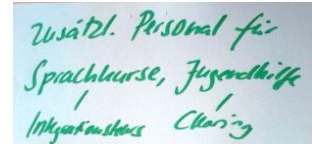 Zusätzl. Personal für
Sprachkurse, Jugendhilfe
/ /
Integrationskurs Clearing